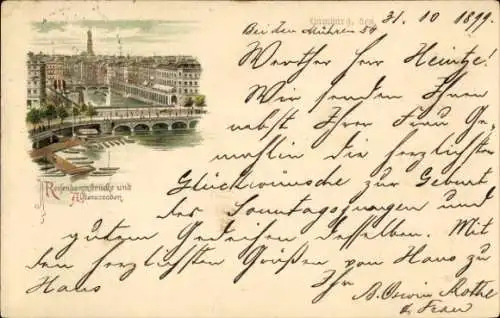 Hamburg, den 31. 10 1899
Bei den Mühren 54
Werther Herr Heintze!
Wir senden Ihnen
nebst Ihrer Frau Ge-
mahlin die herzlichsten
Glückwünsche zur Geburt
des Sonntagsjungen und
gutem Gedeihen desselben. Mit
den herzlichsten Grüßen von Haus zu
Haus Ihr
A. Oscar Rothe
& Frau
Reesendammbrücke und
Alsterarcaden.